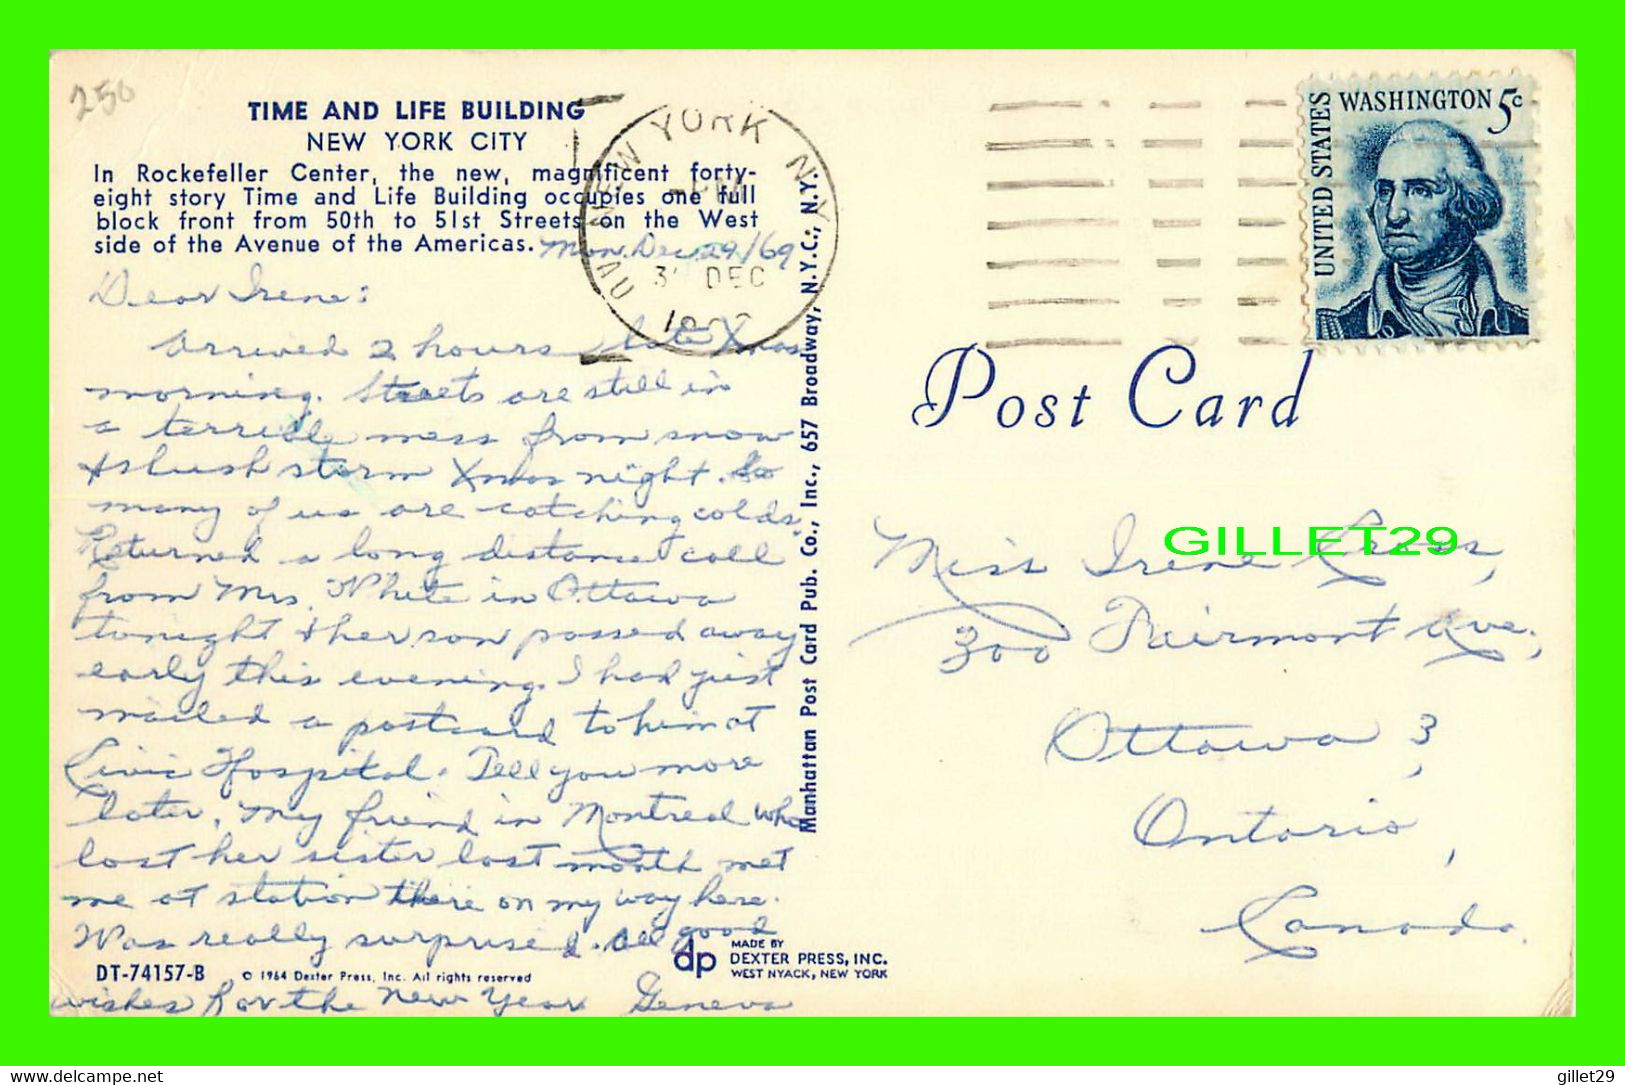 250
TIME AND LIFE BUILDING
NEW YORK CITY
In Rockefeller Center, the new, magnificent forty-
eight story Time and Life Building occupies one full
block front from 50th to 51st Streets on the West
side of the Avenue of the Americas.
Mon. Dec. 29/69
Dear Irene:
Arrived 2 hours late Xmas
morning. Streets are still in
a terrible mess from snow
& slush storm Xmas night. So
many of us are catching colds.
Returned a long distance call
from Mrs. White in Ottawa
tonight & her son passed away
early this evening. I had just
mailed a postcard to him at
Civic Hospital. Tell you more
later. My friend in Montreal who
lost her sister last month met
me at station there on my way here.
Was really surprised. All good
wishes for the New Year Geneva
DT-74157-B
© 1964 Dexter Press, Inc. All rights reserved
dp
MADE BY
DEXTER PRESS, INC.
WEST NYACK, NEW YORK
Manhattan Post Card Pub. Co., Inc., 657 Broadway, N.Y.C., N.Y.
NEW YORK N.Y.
PM
DEC
UNITED STATES
WASHINGTON 5c
Post Card
GILLET29
Miss Irene Cross,
300 Fairmont Ave.,
Ottawa 3,
Ontario,
Canada.
https://www.delcampe.net
gillet29